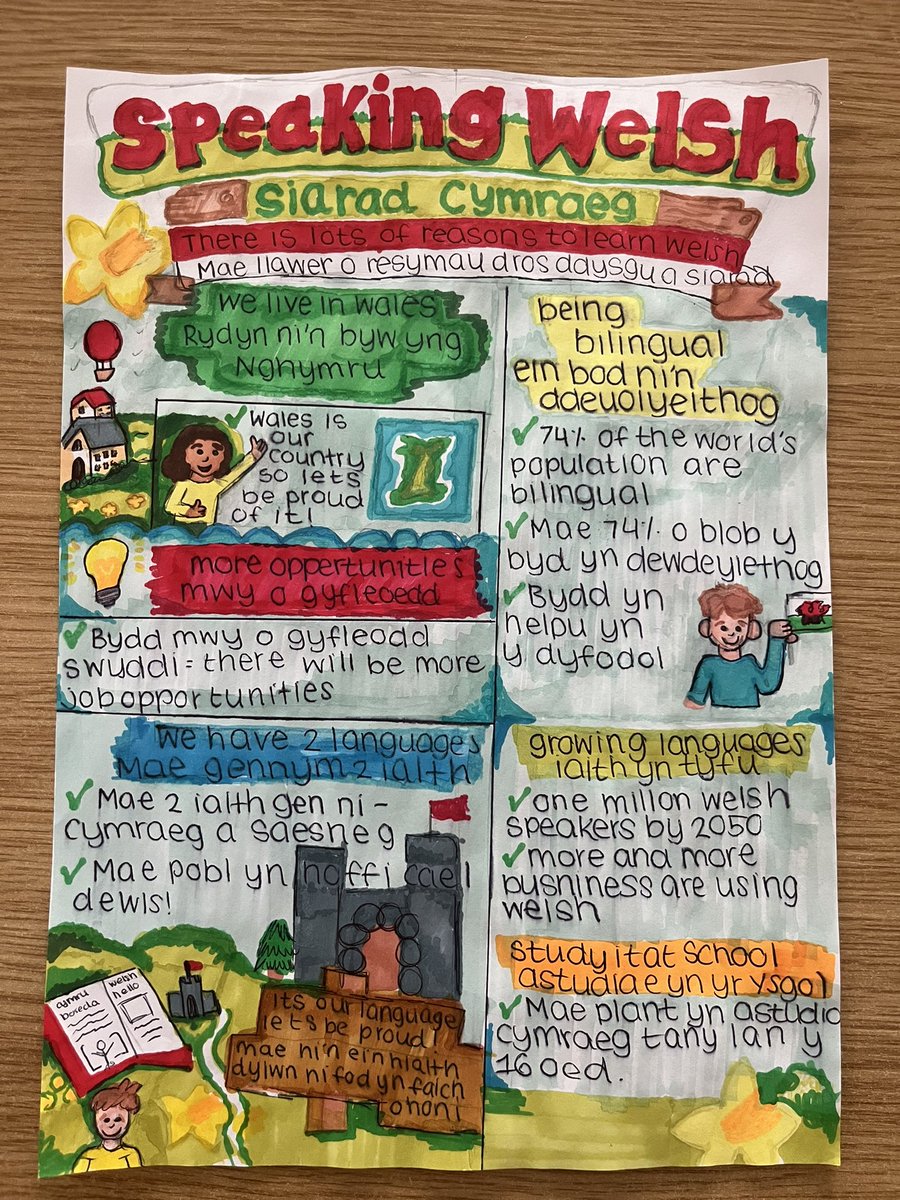 Speaking Welsh
Siarad Cymraeg
There is lots of reasons to learn welsh
Mae llawer o resymau dros daysgu a siarad
we live in wales
Rydyn ni'n byw yng
Nghymru
wales is
our
country
so lets
be proud
of it!
more oppertunities
mwy o gyfleoedd
Bydd mwy o gyfleodd
swyddi = there will be more
job opportunities
being
bilingual
ein bod ni'n
ddeuolyeithog
74% of the world's
population are
bilingual
Mae 74% o blob y
byd yn dewdeyiethog
Bydd yn
helpu yn
y dyfodol
we have 2 languages
Mae gennym 2 iaith
Mae 2 iaith gen ni -
cymraeg a saesneg
Mae pobl yn hoffi cael
dewis!
cymru
boreda
welsh
hello
its our language
lets be proud!
mae hi'n ein hiaith
dylwn ni fod yn falch
ohoni
growing languages
iaith yn tyfu
one millon welsh
speakers by 2050
more and more
busniness are using
welsh
study it at school
astudia e yn yr ysgol
Mae plant yn astudio
cymraeg tany lan y
16 oed.